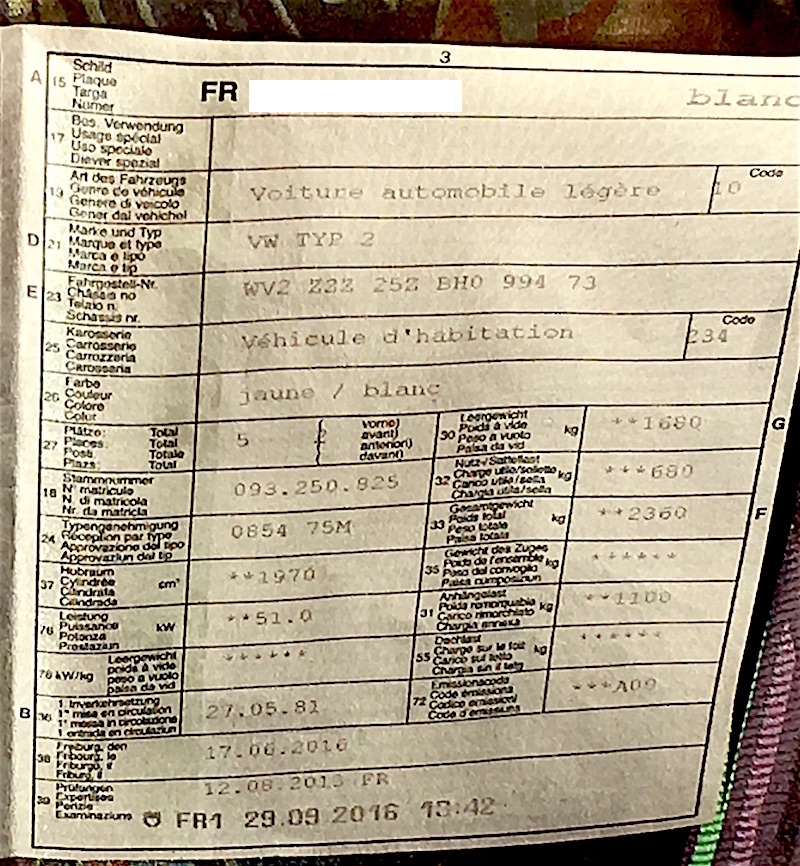 3
A
15
Schild
Plaque
Targa
Numer
FR
blanc
17
Bes. Verwendung
Usage spécial
Uso speciale
Diever spezial
19
Art des Fahrzeugs
Genre de véhicule
Genere di veicolo
Gener dal vehichel
Voiture automobile légère
Code
10
D
21
Marke und Typ
Marque et type
Marca e tipo
Marca e tip
VW TYP 2
E
23
Fahrgestell-Nr.
Châssis no
Telaio n.
Schassis nr.
WV2 ZZZ 25Z BH0 994 73
25
Karosserie
Carrosserie
Carrozzeria
Carossaria
Véhicule d'habitation
Code
234
26
Farbe
Couleur
Colore
Colur
jaune / blanc
27
Plätze: Total
Places: Total
Posti: Totale
Plazs: Total
5
vorne)
avant)
anteriori)
davant)
30
Leergewicht
Poids à vide
Peso a vuoto
Paisa da vid
kg
**1680
G
18
Stammnummer
N° matricule
N. di matricola
Nr. da matricla
093.250.825
32
Nutz-/Sattellast
Charge utile/sellette
Carico utile/sella
Chargia utila/sella
kg
***680
24
Typengenehmigung
Réception par type
Approvazione del tipo
Approvaziun dal tip
0854 75M
33
Gesamtgewicht
Poids total
Peso totale
Paisa totala
kg
**2360
F
37
Hubraum
Cylindrée
Cilindrata
Cilindrada
cm³
**1970
35
Gewicht des Zuges
Poids de l'ensemble
Peso del convoglio
Paisa cumposiziun
kg
******
76
Leistung
Puissance
Potenza
Prestaziun
kW
**51.0
31
Anhängelast
Poids remorquable
Carico rimorchiato
Chargia annexa
kg
**1100
78 kW/kg
Leergewicht
poids à vide
peso a vuoto
paisa da vid
******
55
Dachlast
Charge sur le toit
Carico sul tetto
Chargia sin il tetg
kg
******
B
36
1. Inverkehrsetzung
1re mise en circulation
1a messa in circolazione
1. entrada en circulaziun
27.05.81
72
Emissionscode
Code émissions
Codice emissioni
Code d'emissiuns
***A00
38
Freiburg, den
Fribourg, le
Friburgo, il
Friburg, il
17.06.2016
39
Prüfungen
Expertises
Perizie
Examinaziuns
12.08.2013 FR
FR1 29.09 2016 13:42